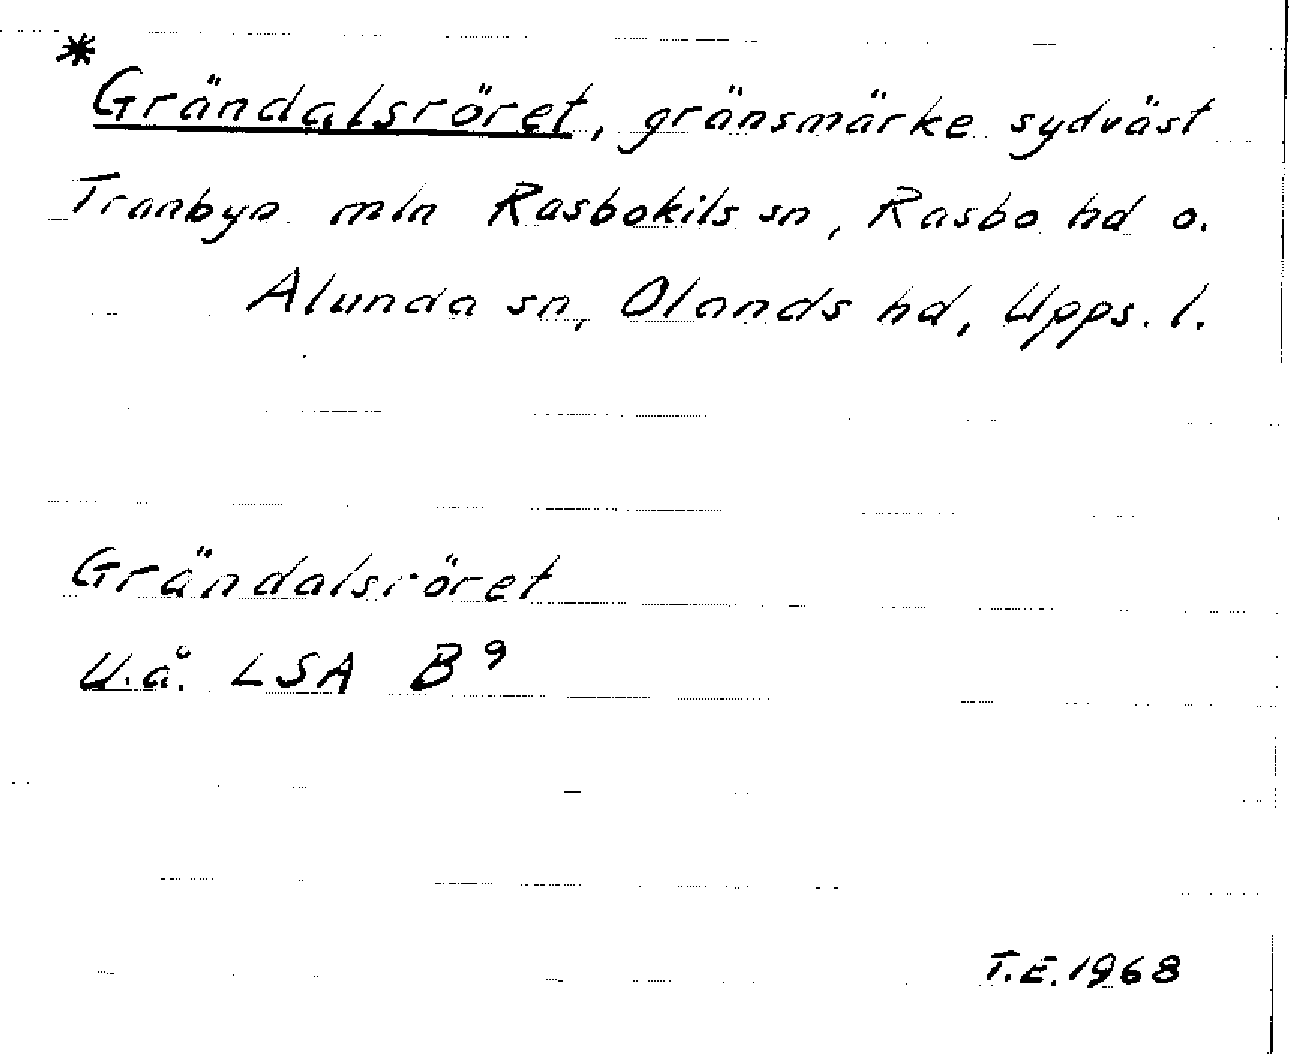 *Grändalsröret, gränsmärke sydväst
Tranbyn mln Rasbokils sn, Rasbo hd o.
Alunda sn, Olands hd, Upps. l.
Grändalsröret
U.å. LSA B⁹
T.E. 1968